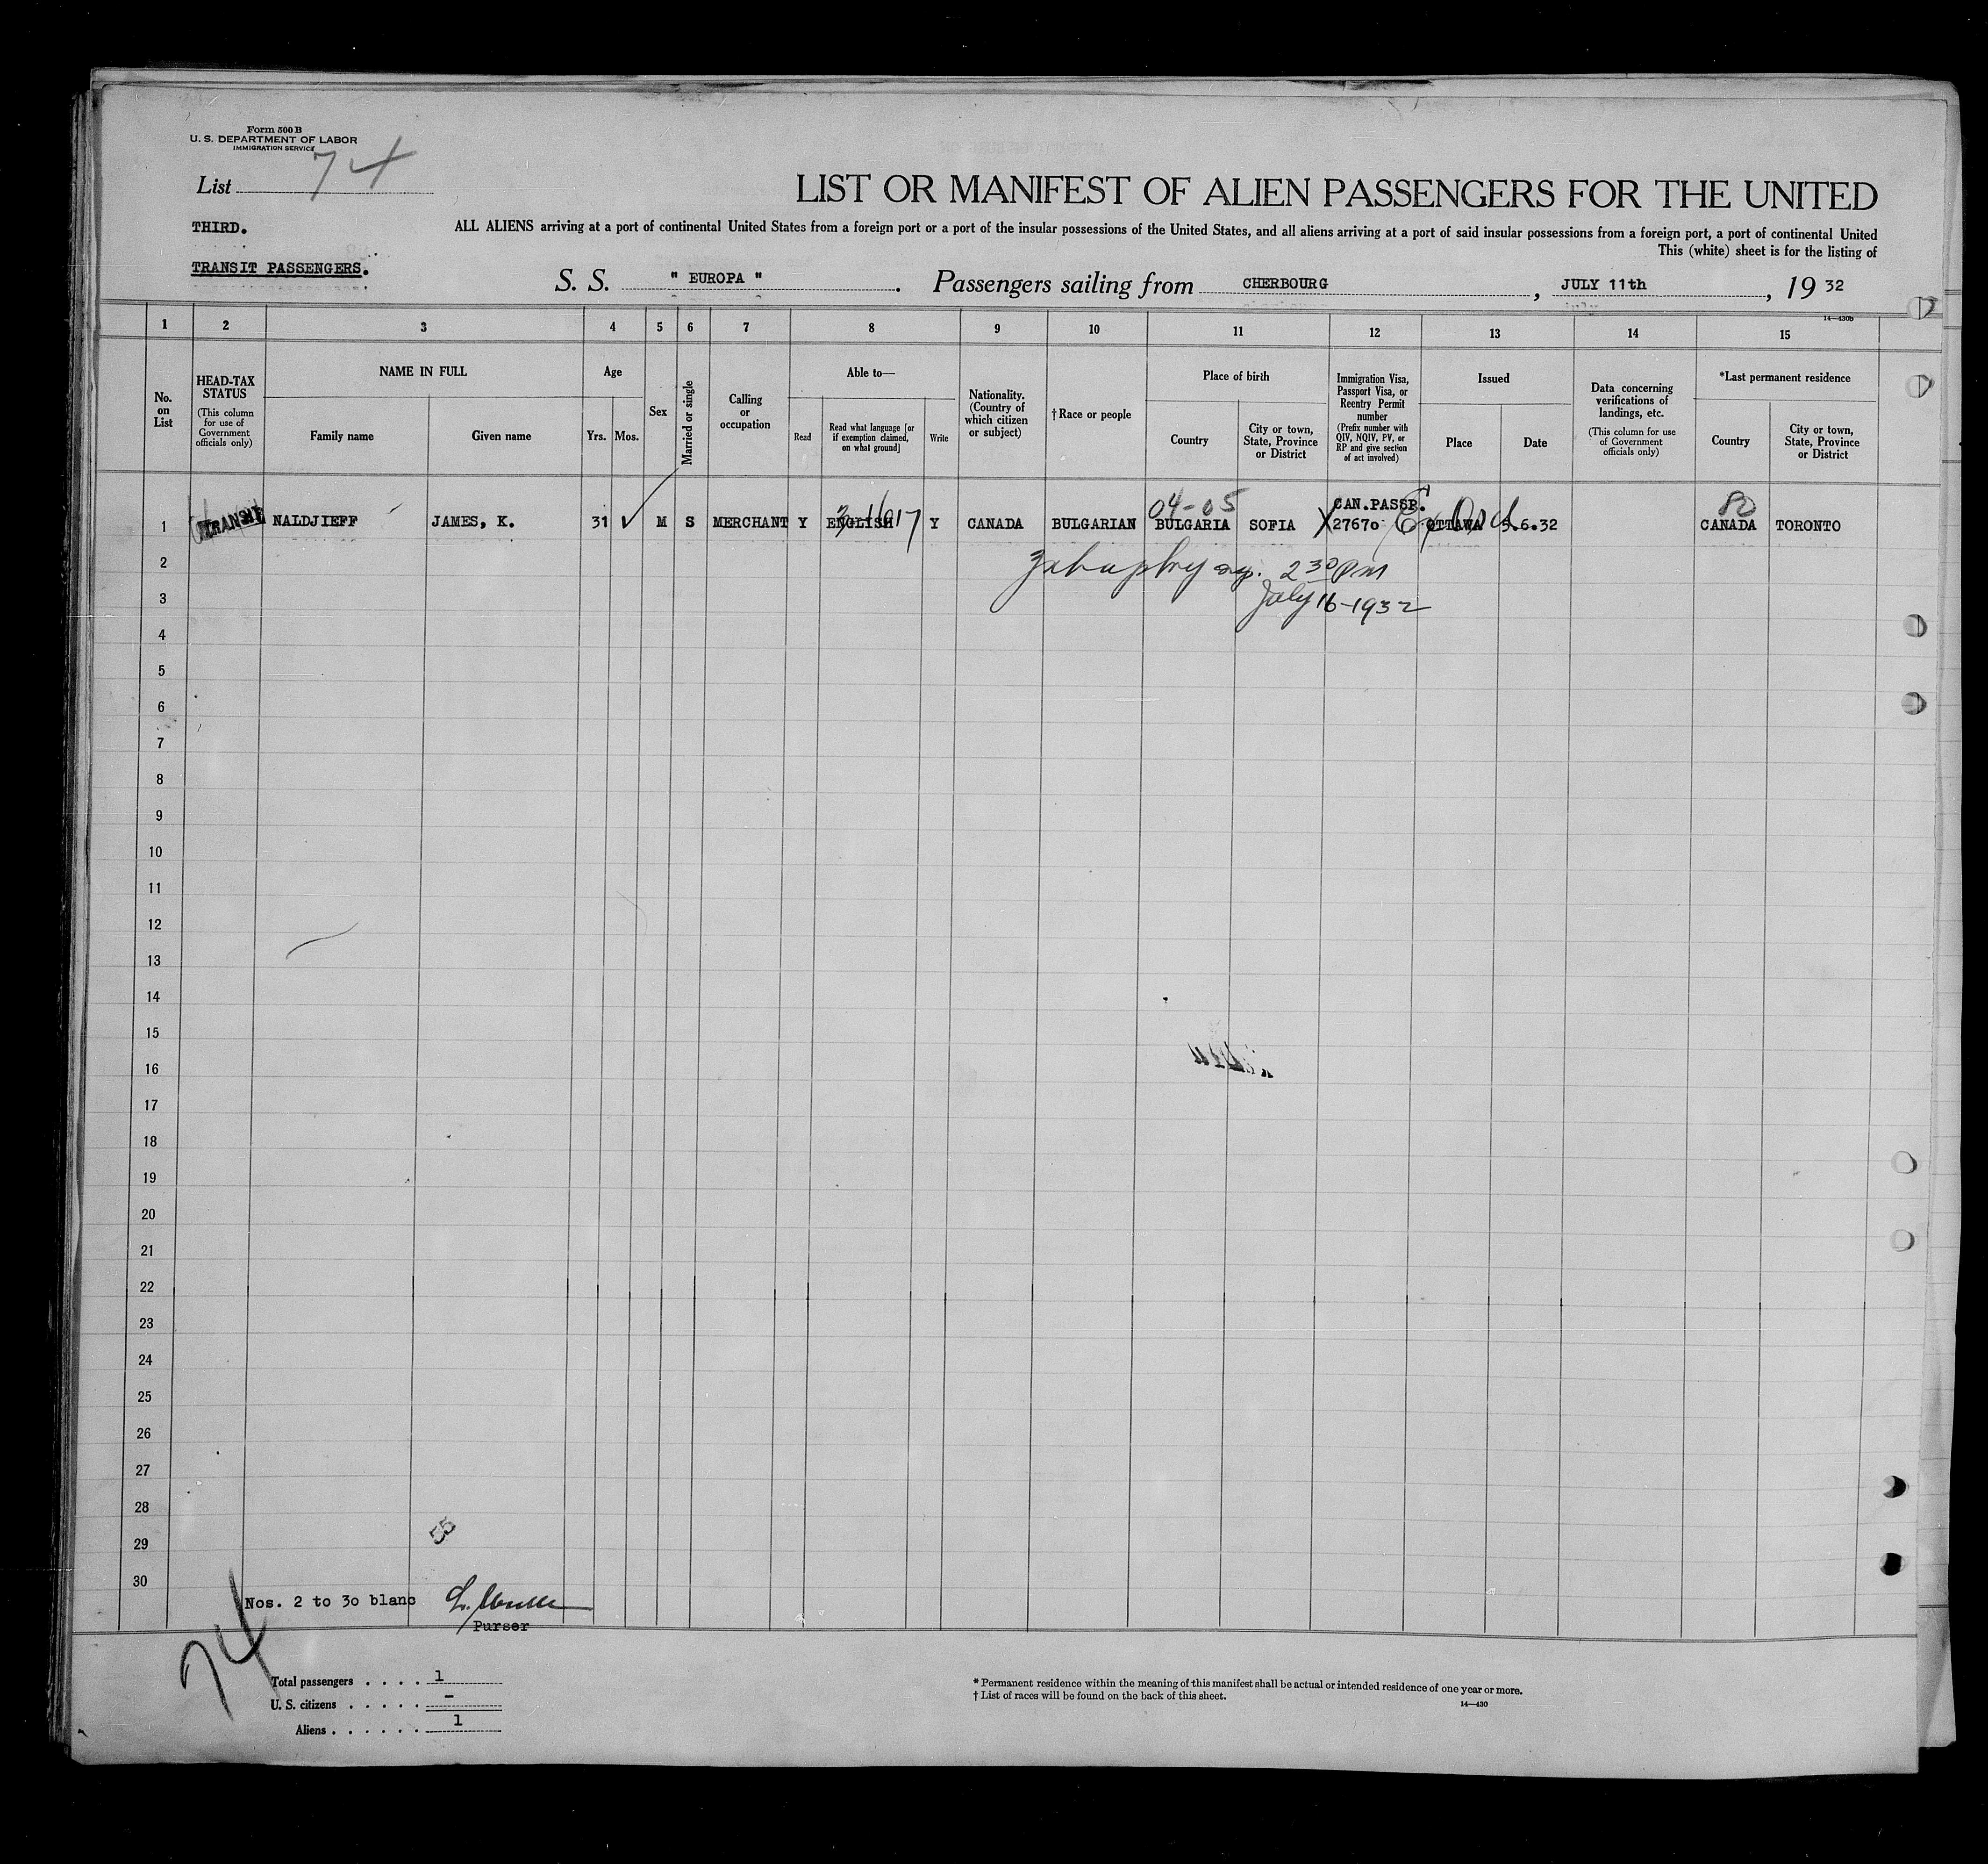 Form 500 B
U. S. DEPARTMENT OF LABOR
IMMIGRATION SERVICE
List 74
LIST OR MANIFEST OF ALIEN PASSENGERS FOR THE UNITED
THIRD.
ALL ALIENS arriving at a port of continental United States from a foreign port or a port of the insular possessions of the United States, and all aliens arriving at a port of said insular possessions from a foreign port, a port of continental United
This (white) sheet is for the listing of
TRANSIT PASSENGERS.
S. S. " EUROPA ". Passengers sailing from CHERBOURG, JULY 11th, 19 32
14—430B
1 2 3 4 5 6 7 8 9 10 11 12 13 14 15
No. on List
HEAD-TAX STATUS
(This column for use of Government officials only)
NAME IN FULL
Family name
Given name
Age
Yrs.
Mos.
Sex
Married or single
Calling or occupation
Able to—
Read
Read what language [or if exemption claimed, on what ground]
Write
Nationality. (Country of which citizen or subject)
†Race or people
Place of birth
Country
City or town, State, Province or District
Immigration Visa, Passport Visa, or Reentry Permit number
(Prefix number with QIV, NQIV, PV, or RP and give section of act involved)
Issued
Place
Date
Data concerning verifications of landings, etc.
(This column for use of Government officials only)
*Last permanent residence
Country
City or town, State, Province or District
04-05 CAN.PASSP. 80
1 TRANSIT NALDJIEFF JAMES, K. 31 M S MERCHANT Y ENGLISH Y CANADA BULGARIAN BULGARIA SOFIA X 27670 OTTAWA 3.6.32 CANADA TORONTO
2 2 30 PM
3 July 16-1932
4
5
6
7
8
9
10
11
12
13
14
15
16
17
18
19
20
21
22
23
24
25
26
27
28
55
29
30
Nos. 2 to 30 blanc
Purser
74
Total passengers . . . . 1
U. S. citizens . . . . . –
Aliens . . . . . . 1
* Permanent residence within the meaning of this manifest shall be actual or intended residence of one year or more.
† List of races will be found on the back of this sheet.
14—430